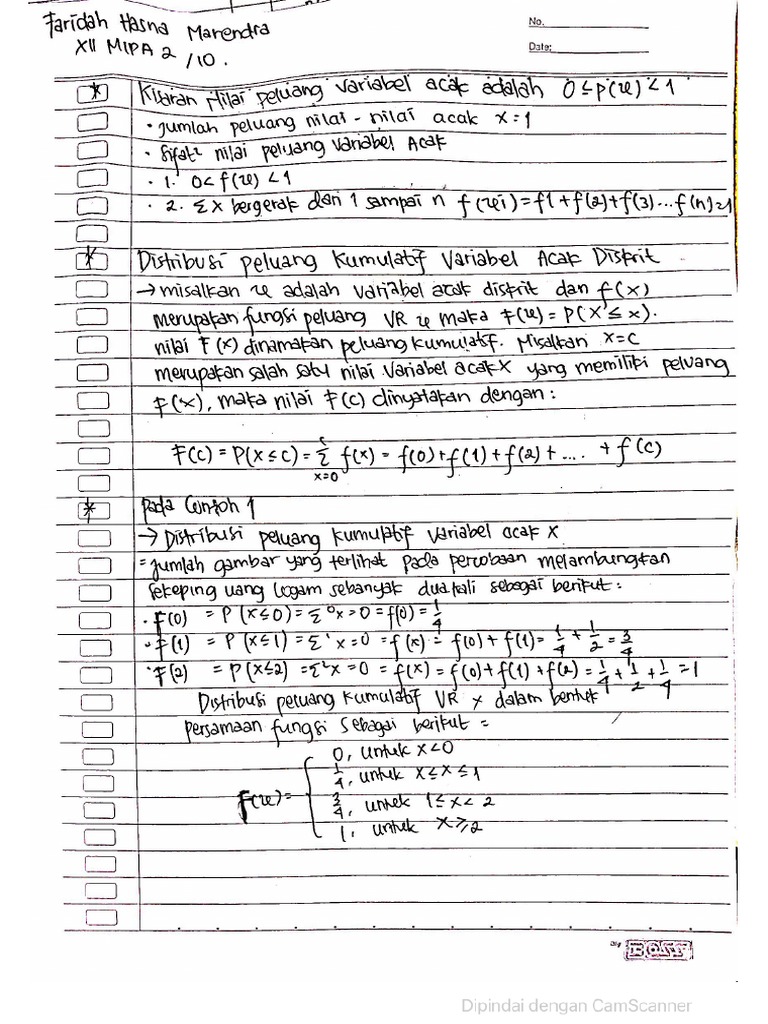 Faridah Hasna Marendra
XII MIPA 2 /10.
No.
Date:
* Kisaran Nilai peluang variabel acak adalah 0 ≤ p(x) < 1
• Jumlah peluang nilai - nilai acak x = 1
• Sifat² nilai peluang variabel Acak
• 1. 0 < f(x) < 1
• 2. Σx bergerak dari 1 sampai n f(xi) = f1 + f(2) + f(3) ... f(n) = 1
* Distribusi peluang Kumulatif Variabel Acak Diskrit
→ misalkan x adalah variabel acak diskrit dan f(x)
merupakan fungsi peluang VR x maka F(x) = P(X ≤ x).
nilai F(x) dinamakan peluang kumulatif. Misalkan x=c
merupakan salah satu nilai variabel acak X yang memiliki peluang
F(x), maka nilai F(c) dinyatakan dengan :
F(c) = P(x ≤ c) = Σ f(x) = f(0) + f(1) + f(2) + .... + f(c)
c
x=0
* pada Contoh 1
→ Distribusi peluang kumulatif variabel acak X
= jumlah gambar yang terlihat pada percobaan melambungkan
sekeping uang logam sebanyak dua kali sebagai berikut :
• F(0) = P(x≤0) = Σ⁰x=0 = f(0) = 1/4
• F(1) = P(x≤1) = Σ¹x=0 = f(x) = f(0) + f(1) = 1/4 + 1/2 = 3/4
• F(2) = P(x≤2) = Σ²x=0 = f(x) = f(0) + f(1) + f(2) = 1/4 + 1/2 + 1/4 = 1
Distribusi peluang kumulatif VR x dalam bentuk
persamaan fungsi sebagai berikut =
F(x) =
0, untuk x<0
1/4, untuk x≤x≤1
3/4, untuk 1≤x<2
1, untuk x≥2
BOSS
Dipindai dengan CamScanner